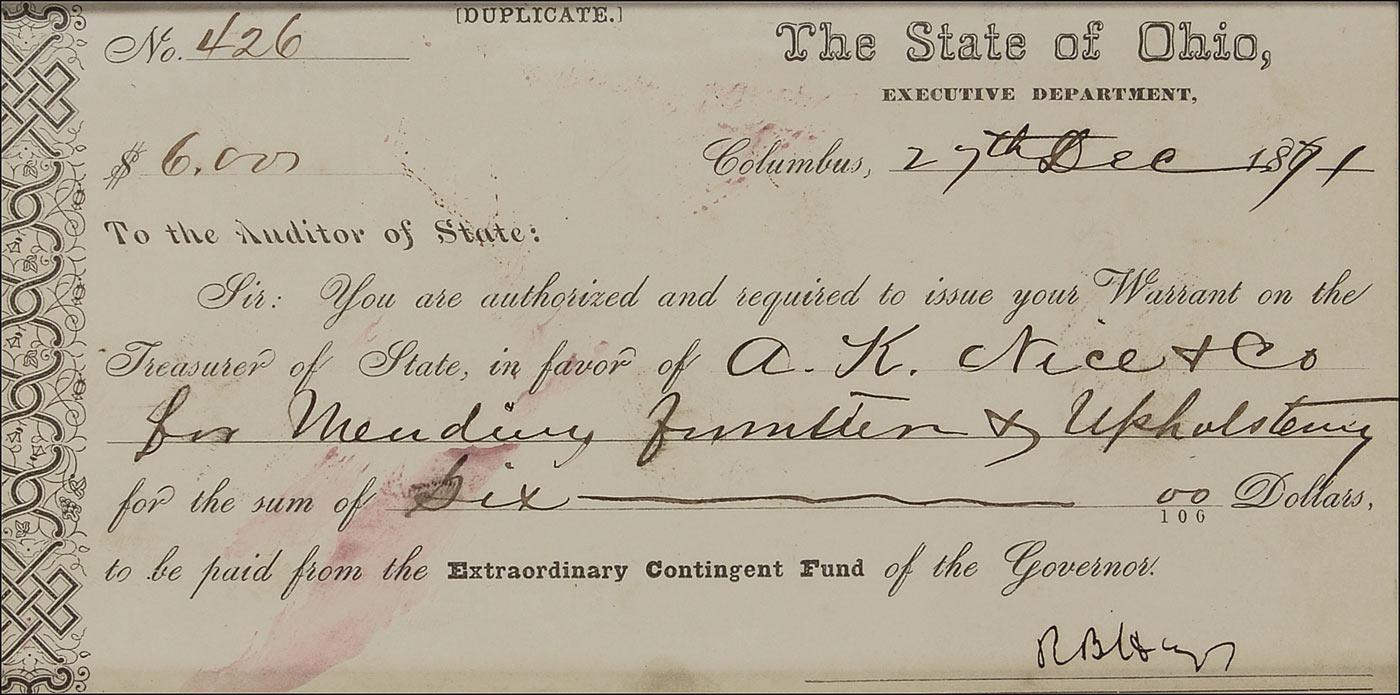 [DUPLICATE.]
No. 426
The State of Ohio,
EXECUTIVE DEPARTMENT,
$ 6.00
Columbus, 27th Dec 1871
To the Auditor of State:
Sir: You are authorized and required to issue your Warrant on the
Treasurer of State, in favor of A. K. Nice & Co
for Mending furniture & Upholstering
for the sum of Six 00/100 Dollars,
to be paid from the Extraordinary Contingent Fund of the Governor.
R B Hayes